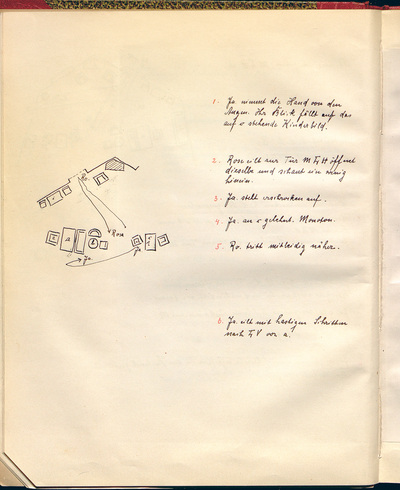 1. Ja. nimmt die Hand von den
Augen. Ihr Blick fällt auf das
auf o stehende Kinderbild.
2. Rose eilt zur Tür M öffnet
dieselbe und schaut ein wenig
hinein.
3. Ja. steht erschrocken auf.
4. Ja. an o gelehnt. Monoton.
Rosa
5. Ro. tritt mitleidig näher.
a
Ja.
6. Ja. eilt mit hastigen Schritten
nach V vor a.